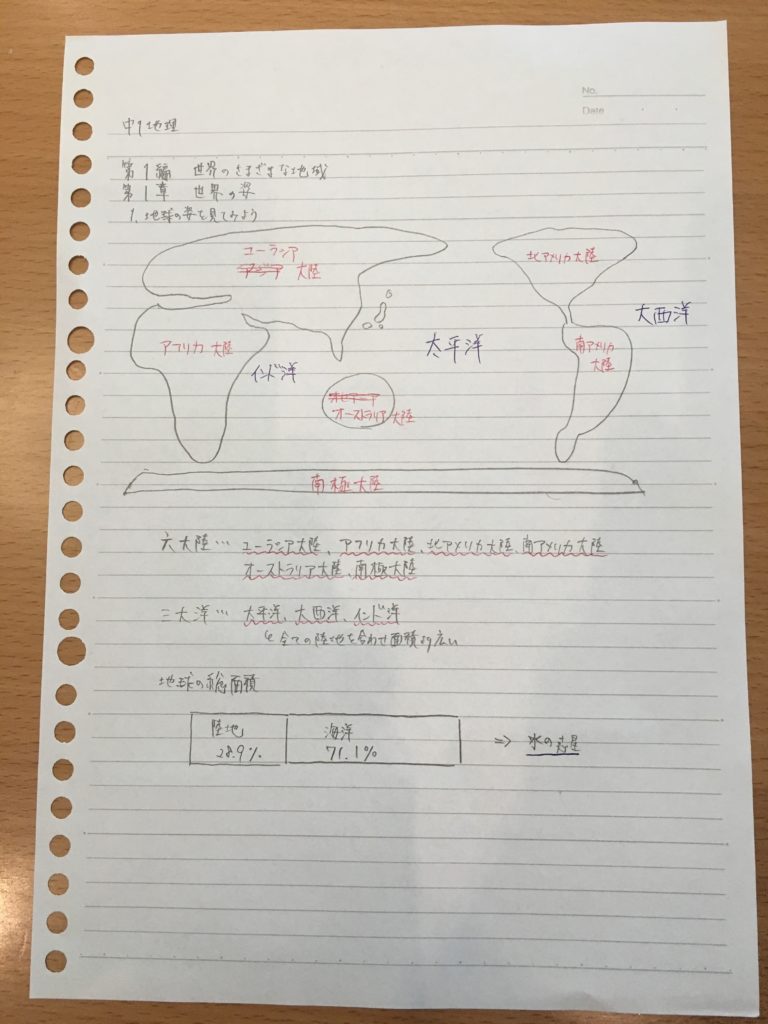 No.
Date
中1地理
第1編 世界のさまざまな地域
第1章 世界の姿
1. 地球の姿を見てみよう
ユーラシア
アジア 大陸
北アメリカ大陸
大西洋
アフリカ 大陸
インド洋
太平洋
南アメリカ
大陸
オセアニア
オーストラリア大陸
南極大陸
六大陸… ユーラシア大陸、アフリカ大陸、北アメリカ大陸、南アメリカ大陸
オーストラリア大陸、南極大陸
三大洋… 太平洋、大西洋、インド洋
全ての陸地を合わせ面積より広い
地球の総面積
陸地 海洋
28.9% 71.1% ⇒ 水の惑星